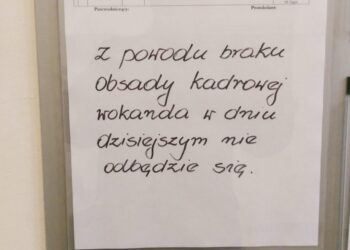 Powodniczący: Protokolant
z powodu braku
obsady kadrowej
wokanda w dniu
dzisiejszym nie
odbędzie się.